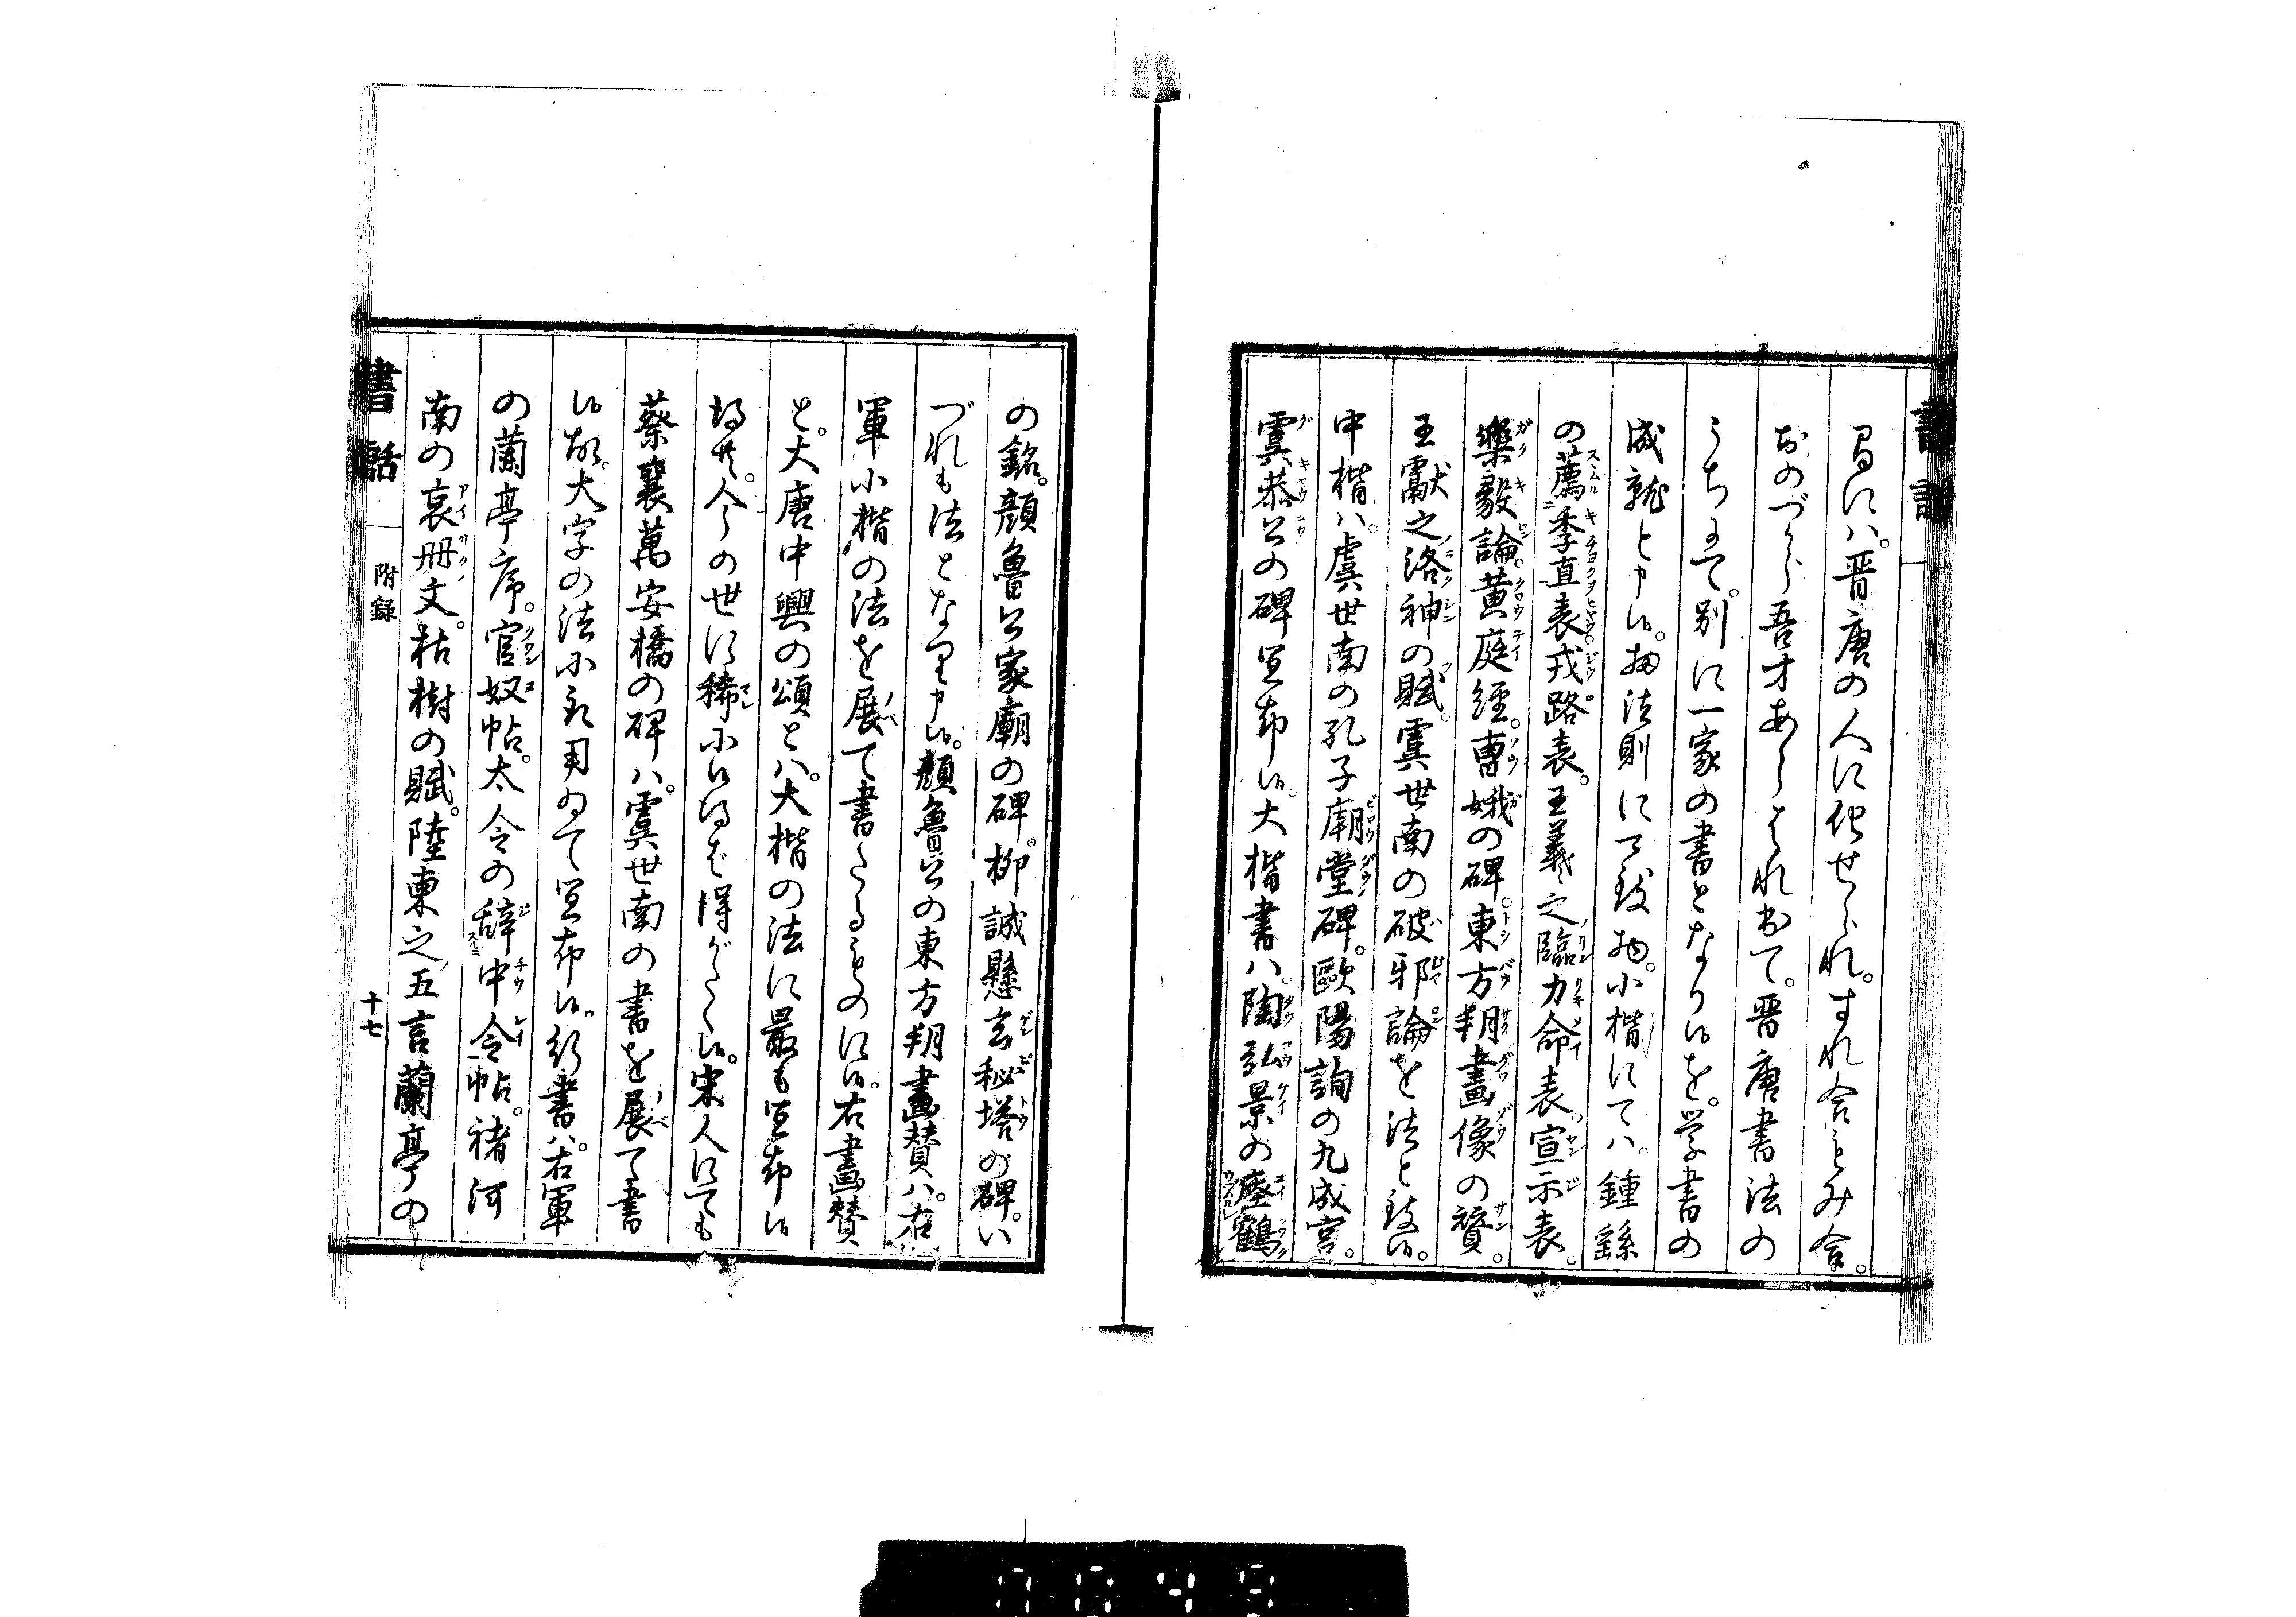 書話
る
に
ハ。晋唐の人に化せられ。すれ合もみ合。
おのづから吾才あらはれ出て。晋唐書法の
うちにて。別に一家の書となり候を。学書の
成就と申候。扨法則にて致
小楷にてハ。鍾繇
の薦季直表戎路表。王羲之臨力命表。宣示表。
樂毅論。黄庭經。曹娥の碑。東方朔畫像の贊。
王獻之洛神の賦。虞世南の破邪論を法と致候。
中楷ハ。虞世南の孔子廟堂碑。歐陽詢の九成宮。
虞恭公の碑宜布候。大楷書ハ。陶弘景の瘞鶴
の銘。顔魯公家廟の碑。柳誠懸玄秘塔の碑。い
づれも法となり申候。顔魯公の東方朔畫賛ハ。右
軍小楷の法を展て書たるものに候。右畫賛
と。大唐中興の頌とハ。大楷の法に最も宜布候
得共。今の世に稀に候得ば得がたく候。宋人にても
蔡襄萬安橋の碑ハ。虞世南の書を展て書
候故。大字の法に取用ゐて宜布候。行書ハ。右軍
の蘭亭序。官奴帖。太令の辞中令帖。褚河
南の哀册文。枯樹の賦。陸東之五言蘭亭の
書話
附録
十七